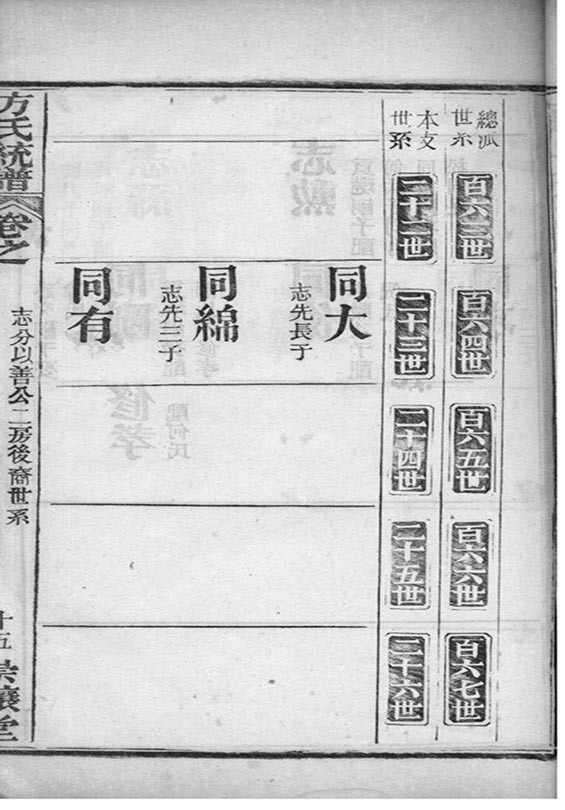 總派世系
百六三世
百六四世
百六五世
百六六世
百六七世
本支世系
二十二世
二十三世
二十四世
二十五世
二十六世
同大
志先長子
同綿
志先三子
同有
方氏統譜
卷之
志分以善公二房後裔世系
十五